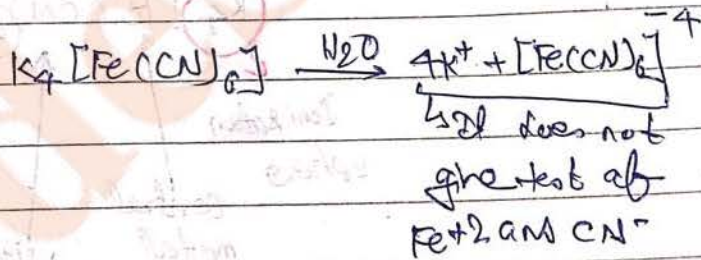 K4 [Fe(CN)6] H2O → 4K+ + [Fe(CN)6]-4
↳ It does not
give test of
Fe+2 and CN-